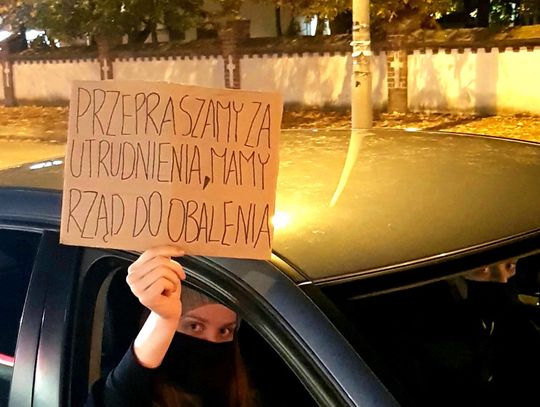 PRZEPRASZAMY ZA
UTRUDNIENIA, MAMY
RZĄD DO OBALENIA